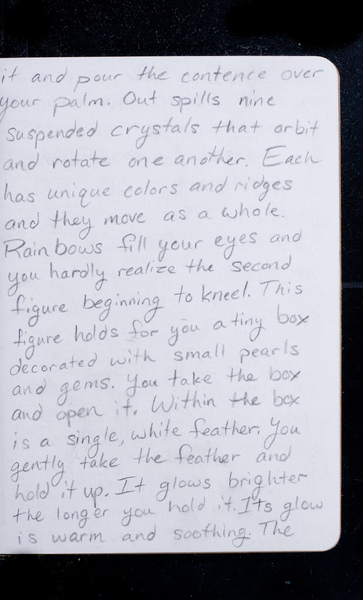 it and pour the contence over
your palm. Out spills nine
suspended crystals that orbit
and rotate one another. Each
has unique colors and ridges
and they move as a whole.
Rainbows fill your eyes and
you hardly realize the second
figure beginning to kneel. This
figure holds for you a tiny box
decorated with small pearls
and gems. You take the box
and open it. Within the box
is a single, white feather. You
gently take the feather and
hold it up. It glows brighter
the longer you hold it. Its glow
is warm and soothing. The